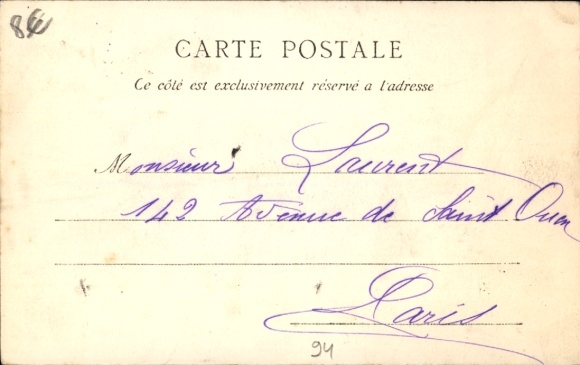 8€
CARTE POSTALE
Ce côté est exclusivement réservé a l'adresse
Monsieur Laurent
142 Avenue de Saint Ouen
Paris
94